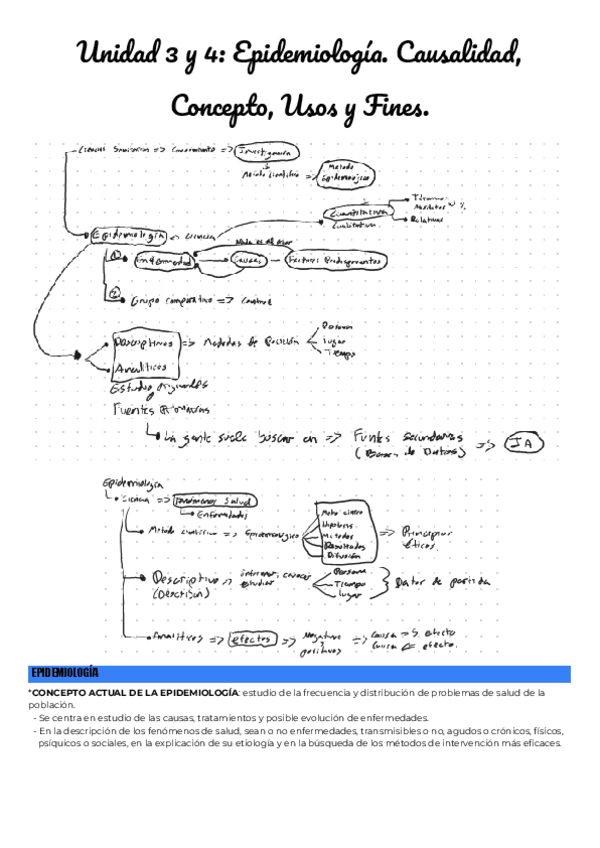 Unidad 3 y 4: Epidemiología. Causalidad,
Concepto, Usos y Fines.
=> Conocimiento => Investigación
Método Científico => Método
Epidemiológico
Cuantitativa
Cualitativa
Relativas
Epidemiología Ciencia
① Enfermedad Causas Factores Predisponentes
② Grupo comparativo => Control
Descriptivos => Medidas de Posición
Persona
Lugar
Tiempo
Analíticos
Estudios originales
Fuentes Primarias
La gente suele buscar en => Fuentes secundarias => IA
(Bases de Datos)
Epidemiología
Ciencia => Fenómenos Salud
Enfermedades
Método Científico => Epidemiológico
Hipótesis
Métodos
Resultados
Difusión
=> Principios
éticos.
Descriptivo =>
(Describen)
estudiar
Persona
Tiempo
Lugar
} Dator de partida
Analíticos => efectos => Negativos
positivos
=> Causa = S. efecto
Causa efecto.
EPIDEMIOLOGÍA
*CONCEPTO ACTUAL DE LA EPIDEMIOLOGÍA: estudio de la frecuencia y distribución de problemas de salud de la
población.
- Se centra en estudio de las causas, tratamientos y posible evolución de enfermedades.
- En la descripción de los fenómenos de salud, sean o no enfermedades, transmisibles o no, agudos o crónicos, físicos,
psíquicos o sociales, en la explicación de su etiología y en la búsqueda de los métodos de intervención más eficaces.